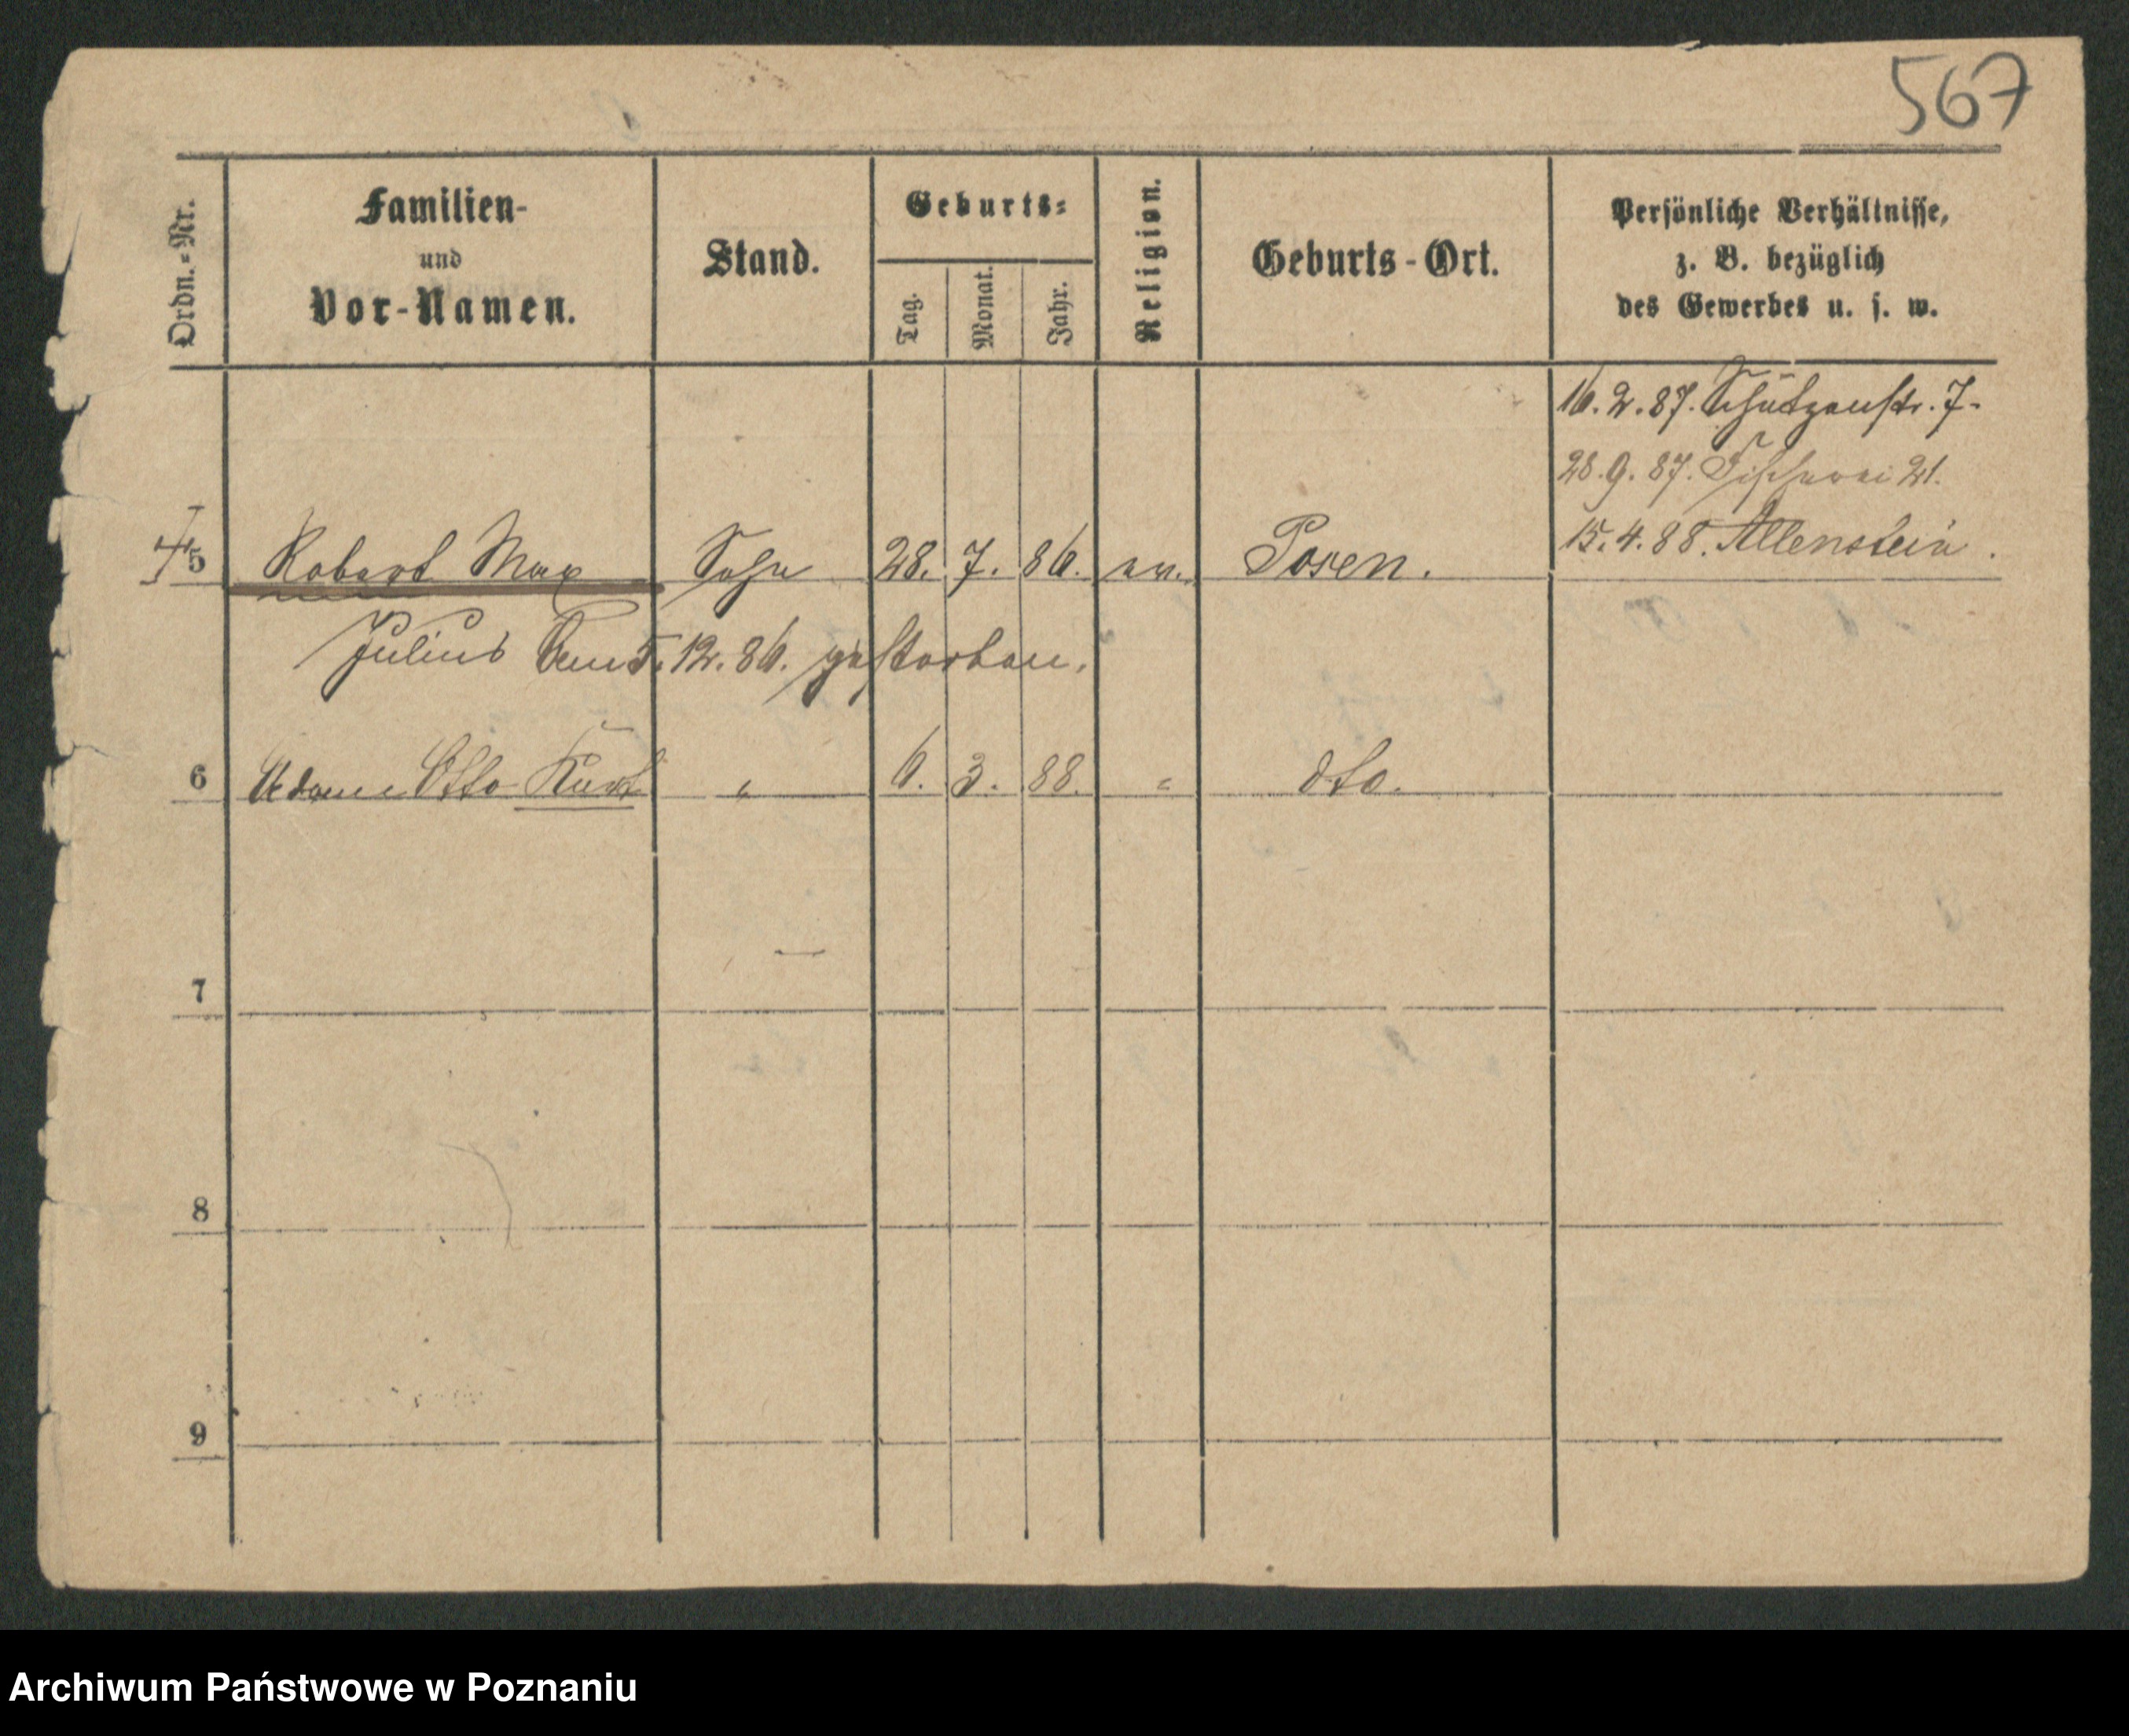 567
Ordn.-Nr.
Familien-
und
Vor-Namen.
Stand.
Geburts-
Tag.
Monat.
Jahr.
Religion.
Geburts-Ort.
Persönliche Verhältnisse,
z. B. bezüglich
des Gewerbes u. s. w.
16.2.87. Schützenstr. 7.
28.9.87. Fischerei 21.
15.4.88. Allenstein.
5 Robert Max Sohn 28. 7. 86. ev. Posen.
Julius am 5. 12. 86. gestorben.
6 Otto Kurt " 6. 3. 88. " dto.
7
8
9
Archiwum Państwowe w Poznaniu